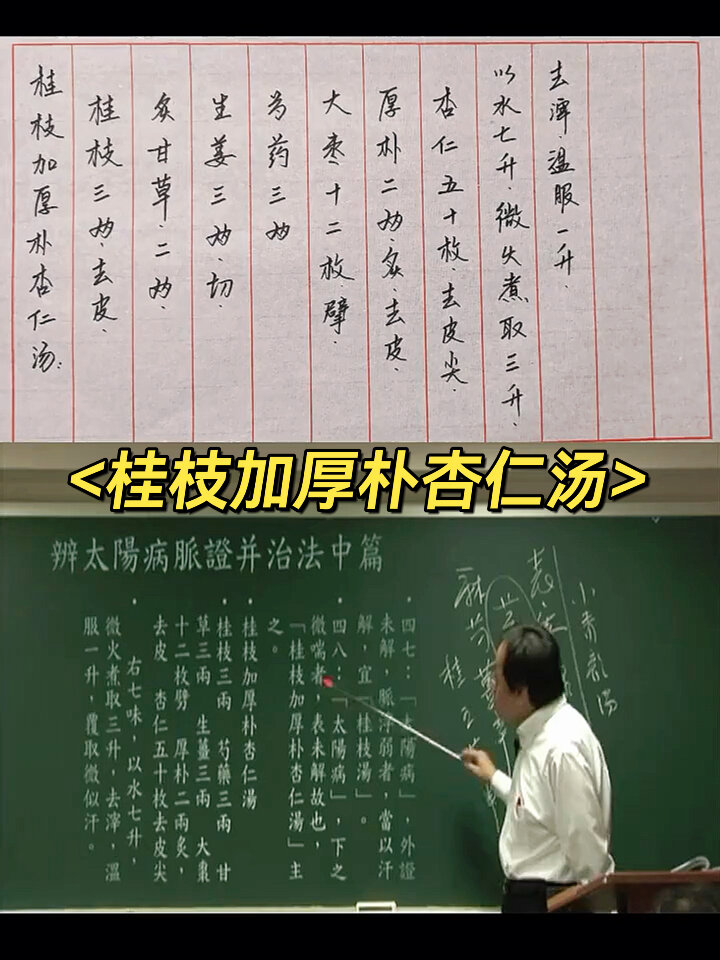 桂枝加厚朴杏仁汤:
桂枝三两.去皮.
炙甘草.二两.
生姜三两.切.
芍药三两
大枣十二枚.擘.
厚朴二两.炙.去皮.
杏仁五十枚.去皮尖.
以水七升.微火煮取三升.
去滓.溫服一升.
<桂枝加厚朴杏仁汤>
辨太陽病脈證并治法中篇
小青龍湯
四七：「太陽病」，外證
未解，脈浮弱者，當以汗
解，宜「桂枝湯」。
四八：「太陽病」，下之
微喘者，表未解故也，
「桂枝加厚朴杏仁湯」主
之。
桂枝加厚朴杏仁湯
桂枝三兩 芍藥三兩 甘
草三兩 生薑三兩 大棗
十二枚劈 厚朴二兩炙，
去皮 杏仁五十枚去皮尖
右七味，以水七升，
微火煮取三升，去滓，溫
服一升，覆取微似汗。